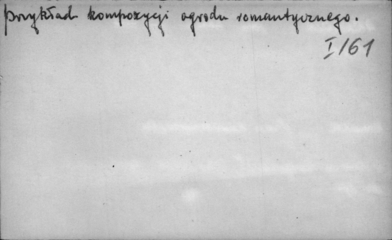 przykład kompozycji ogrodu romantycznego.
I/61